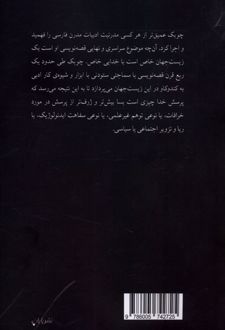 چوبک عمیق‌تر از هر کسی مدرنیت ادبیات مدرن فارسی را فهمید
و اجرا کرد. آن‌چه موضوع سراسری و نهایی قصه‌نویسی او است یک
زیست‌جهان خاص است با خدایی خاص. چوبک طی حدود یک
ربع قرن قصه‌نویسی با سماجتی ستودنی با ابزار و شیوه‌ی کار ادبی
به کندوکاو در این زیست‌جهان می‌پردازد تا به این نتیجه می‌رسد که
پرسش خدا چیزی است بسا بیش‌تر و ژرف‌تر از پرسش در مورد
خرافات، یا نوعی توهم غیرعلمی، یا نوعی سفاهت ایدئولوژیک، یا
ریا و تزویر اجتماعی یا سیاسی.
9 786005 742725